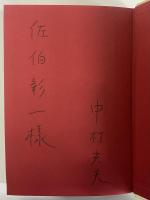 中村光夫
佐伯彰一様